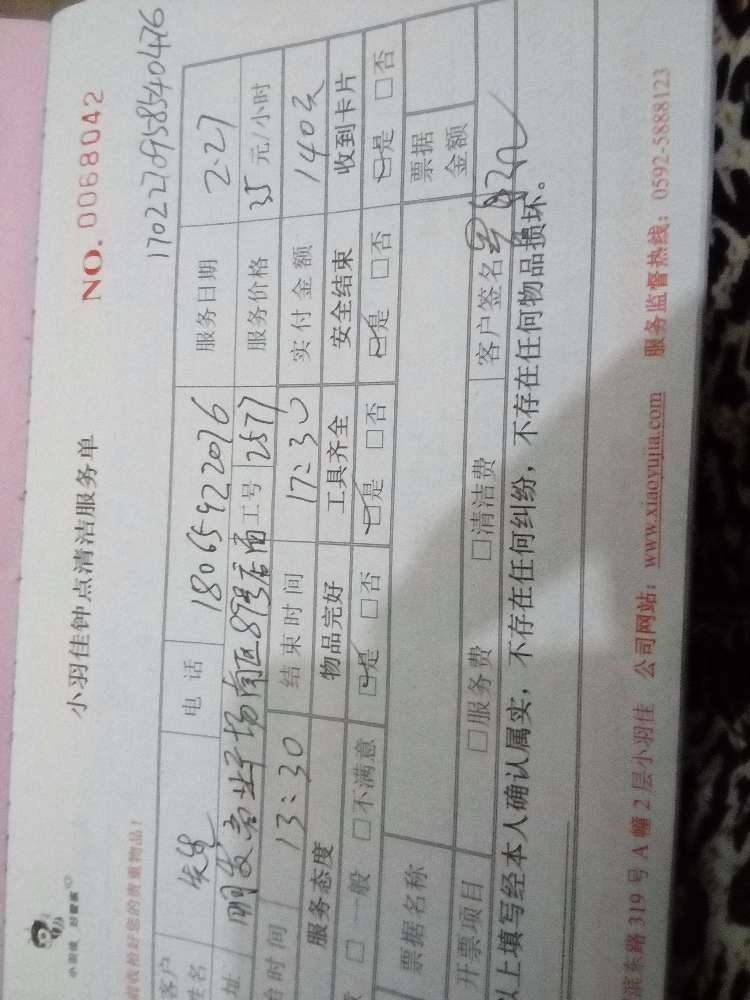 小羽佳 好管家
小羽佳钟点清洁服务单
NO. 0068042
请收拾好您的贵重物品!
1702270958540476
客户姓名 先生 电话 18065922076 服务日期 2.27
址 明发商业广场南区89号店面 工号 2577 服务价格 35 元/小时
始时间 13:30 结束时间 17:30 实付金额 140元
服务态度 物品完好 工具齐全 安全结束 收到卡片
意 □一般 □不满意 □是 □否 □是 □否 □是 □否 □是 □否
票据名称 票据金额
开票项目 □服务费 □清洁费 客户签名
以上填写经本人确认属实,不存在任何纠纷,不存在任何物品损坏。
滨东路319号A幢2层小羽佳 公司网站:www.xiaoyujia.com 服务监督热线:0592-5888123